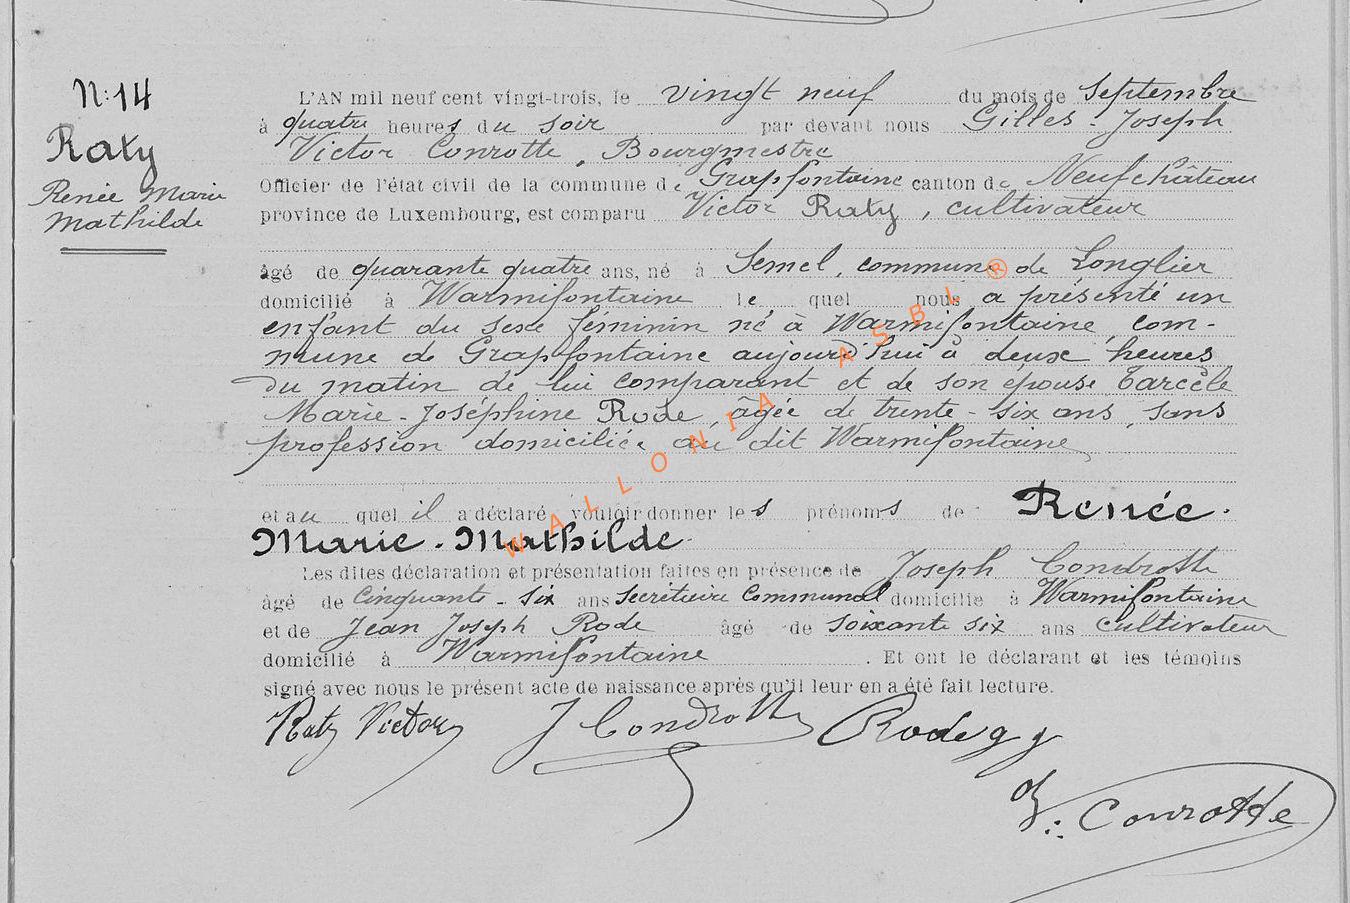 N: 14
Raty
Renée Marie
Mathilde
L'AN mil neuf cent vingt-trois, le vingt neuf du mois de Septembre
à quatre heures du soir par devant nous Gilles-Joseph
Victor Conrotte, Bourgmestre
Officier de l'état civil de la commune de Grapfontaine canton de Neufchâteau
province de Luxembourg, est comparu Victor Raty, cultivateur
âgé de quarante quatre ans, né à Semel, commune de Longlier
domicilié à Warmifontaine le quel nous a présenté un
enfant du sexe féminin né à Warmifontaine, com-
mune de Grapfontaine aujourd'hui à deux heures
du matin de lui comparant et de son épouse Tarcèle
Marie-Joséphine Rode âgée de trente-six ans, sans
profession domiciliée au dit Warmifontaine
et au quel il a déclaré vouloir donner les prénoms de Renée.
Marie. Mathilde.
Les dites déclaration et présentation faites en présence de Joseph Condrotte
âgé de Cinquante-six ans Secrétaire Communal domicilié à Warmifontaine
et de Jean Joseph Rode âgé de soixante six ans cultivateur
domicilié à Warmifontaine. Et ont le déclarant et les témoins
signé avec nous le présent acte de naissance après qu'il leur en a été fait lecture.
Raty Victor J Condrotte Rode
V. Conrotte
WALLONIA ASBL ®